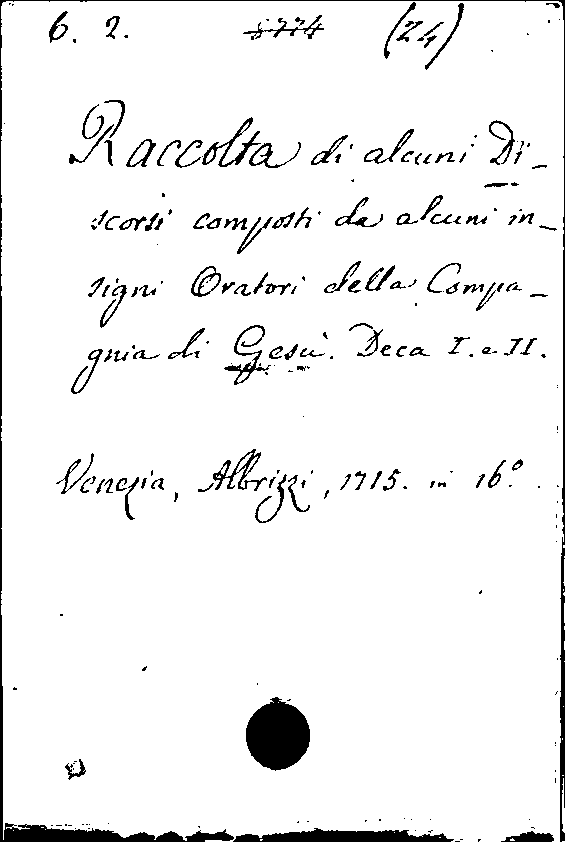 6. 2. 8774 (24)
Raccolta di alcuni Di-
scorsi composti da alcuni in-
signi Oratori della Compa-
gnia di Gesù. Deca I. e II.
Venezia, Albrizzi, 1715. in 16º.